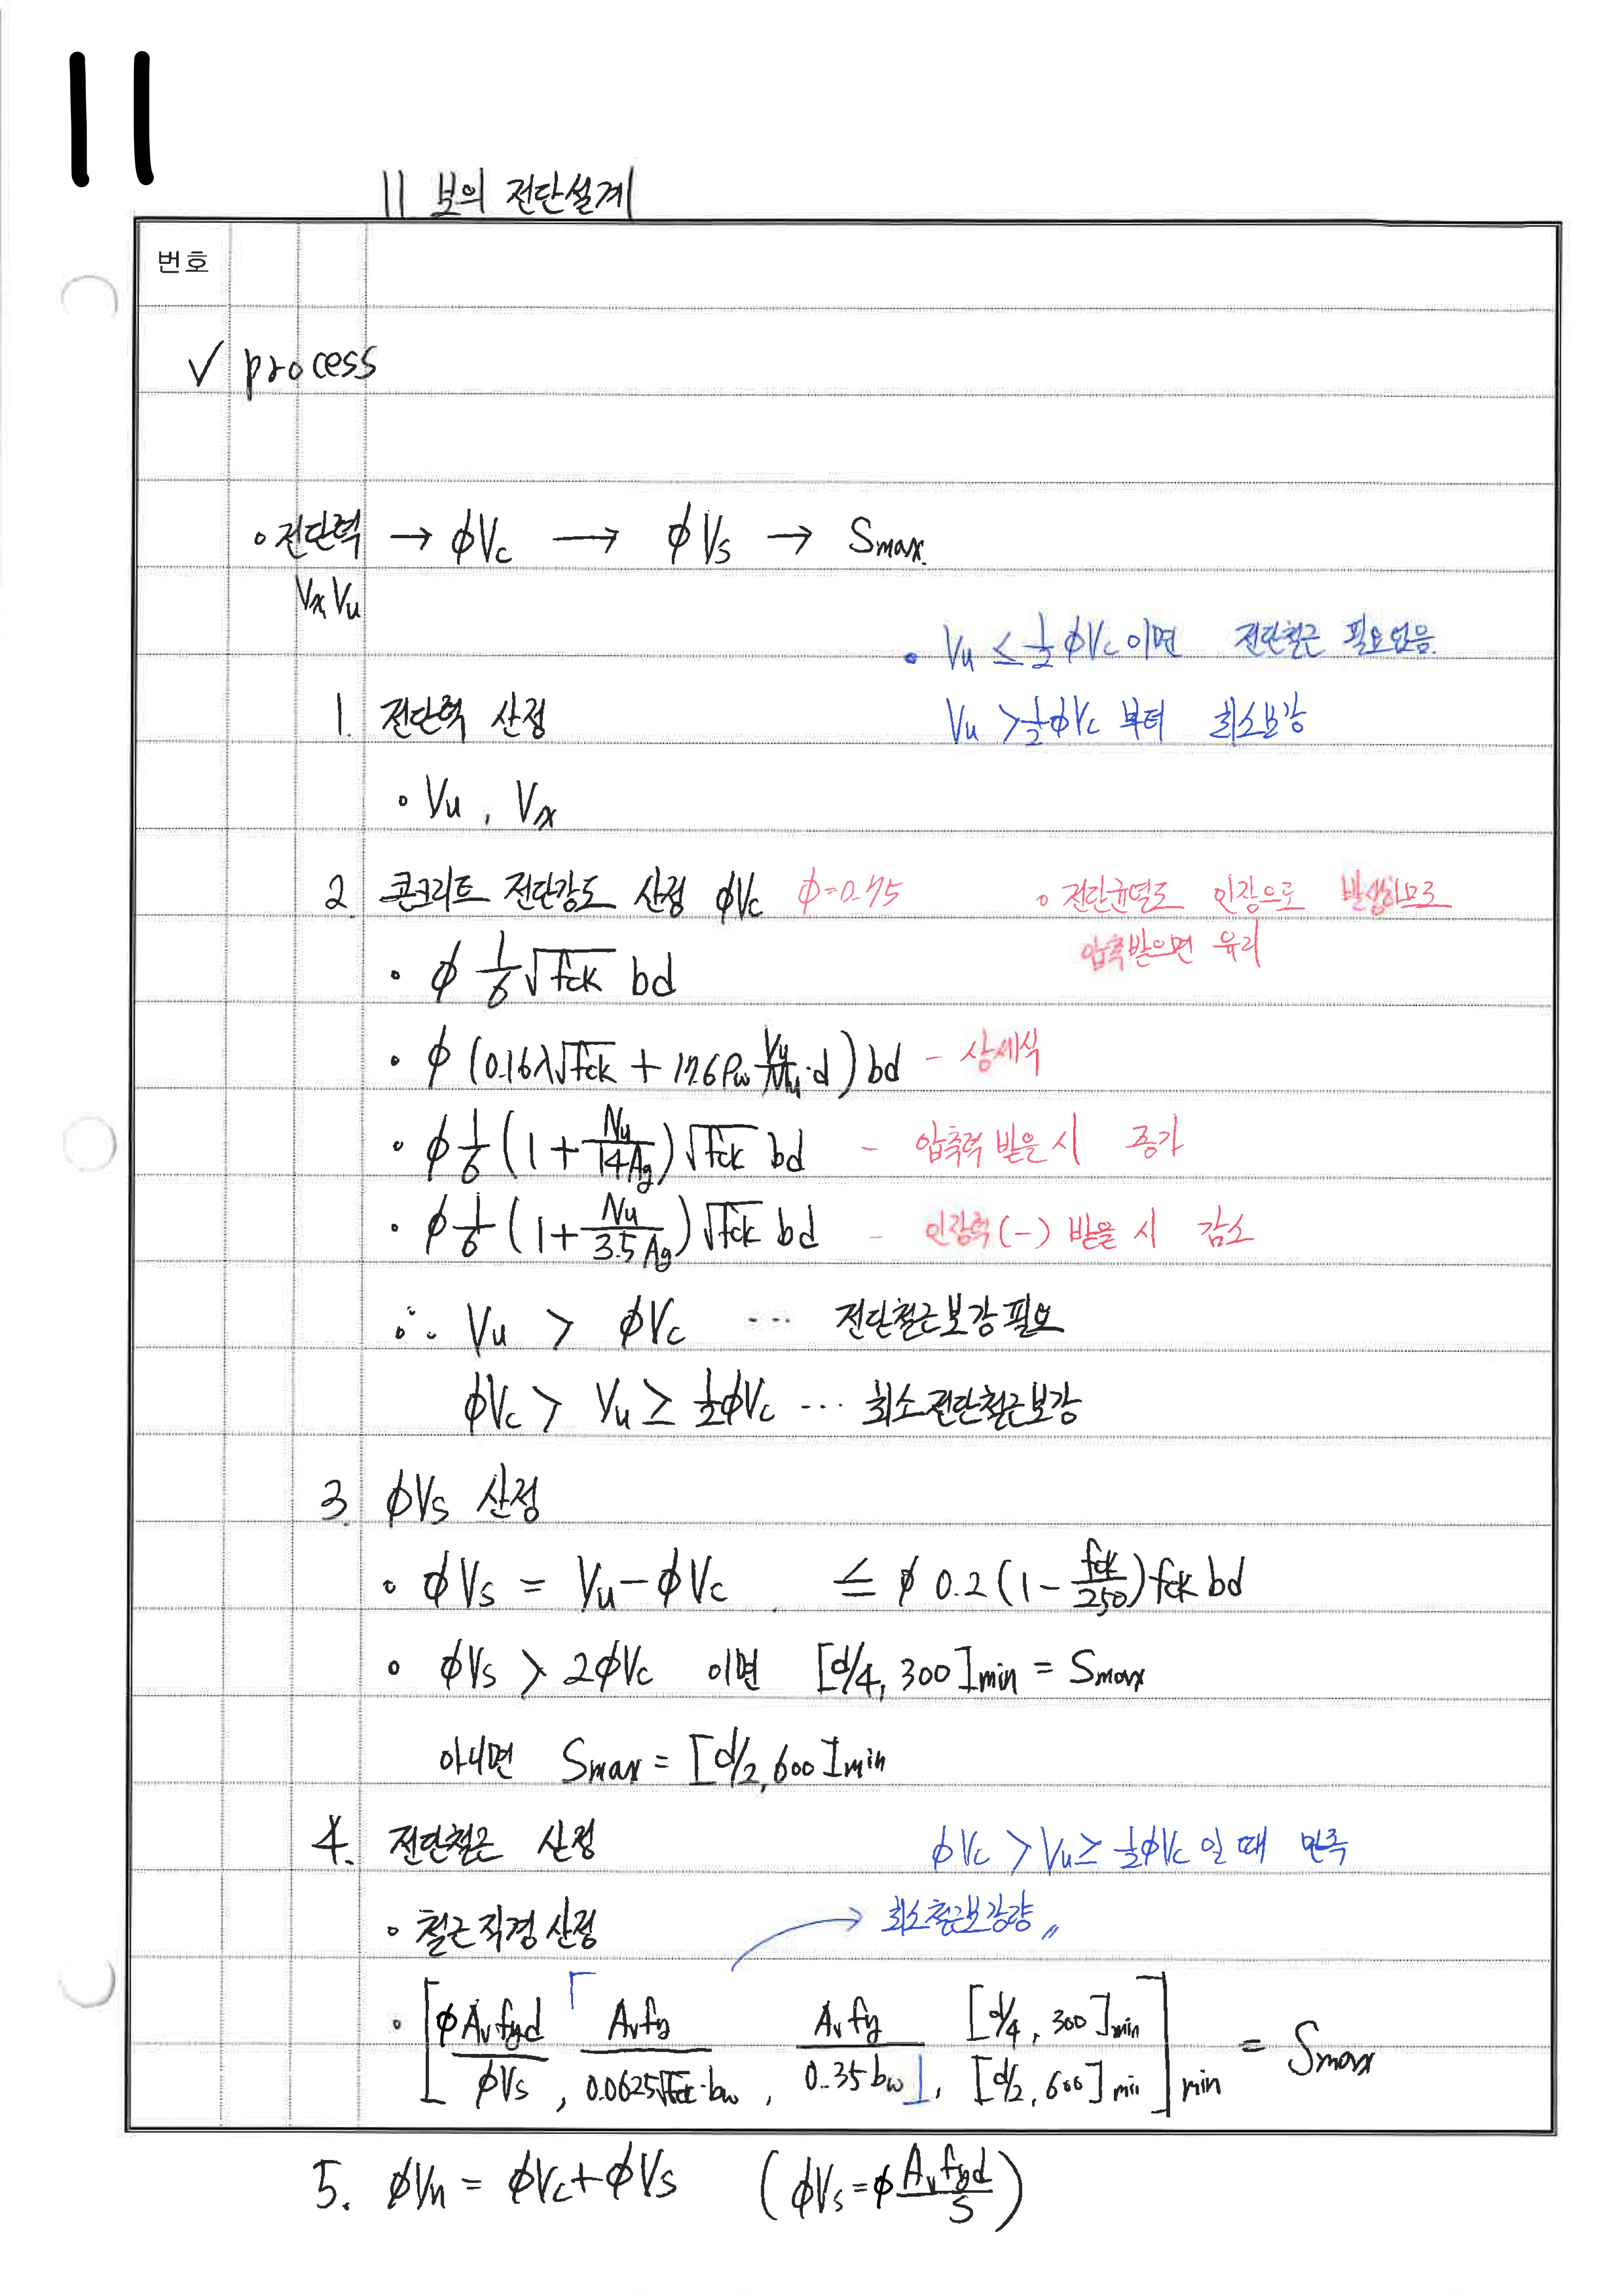 11
11 보의 전단설계
번호
√ process
◦ 전단력 → ϕVc → ϕVs → Smax.
Vx Vu
• Vu ≤ 1/2 ϕVc 이면 전단철근 필요없음.
1. 전단력 산정
Vu > 1/2 ϕVc 부터 최소보강
◦ Vu, Vx
2. 콘크리트 전단강도 산정 ϕVc ϕ=0.75
◦ 전단균열도 인장으로 발생하므로
압축받으면 유리
• ϕ 1/6 √fck bd
• ϕ (0.16λ√fck + 17.6 ρw Vu/Mu·d) bd - 상세식
◦ ϕ 1/6 (1 + Nu/14Ag) √fck bd - 압축력 받을 시 증가
• ϕ 1/6 (1 + Nu/3.5Ag) √fck bd - 인장력(-) 받을 시 감소
∴ Vu > ϕVc … 전단철근보강필요
ϕVc > Vu ≥ 1/2 ϕVc … 최소전단철근보강
3. ϕVs 산정
◦ ϕVs = Vu - ϕVc ≤ ϕ 0.2 (1 - fck/250) fck bd
◦ ϕVs > 2ϕVc 이면 [d/4, 300]min = Smax
아니면 Smax = [d/2, 600]min
4. 전단철근 산정
ϕVc > Vu ≥ 1/2 ϕVc 일 때 만족
◦ 철근직경산정
→ 최소철근보강량 〃
• [ϕAvfyd/ϕVs, 「Avfy/0.0625√fck·bw, Avfy/0.35bw」, [d/4, 300]min [d/2, 600]min]min = Smax
5. ϕVn = ϕVc + ϕVs (ϕVs = ϕ Avfyd/S)